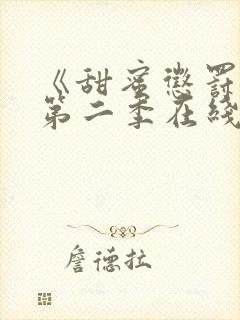 《甜蜜惩罚
第二季在线
詹德拉